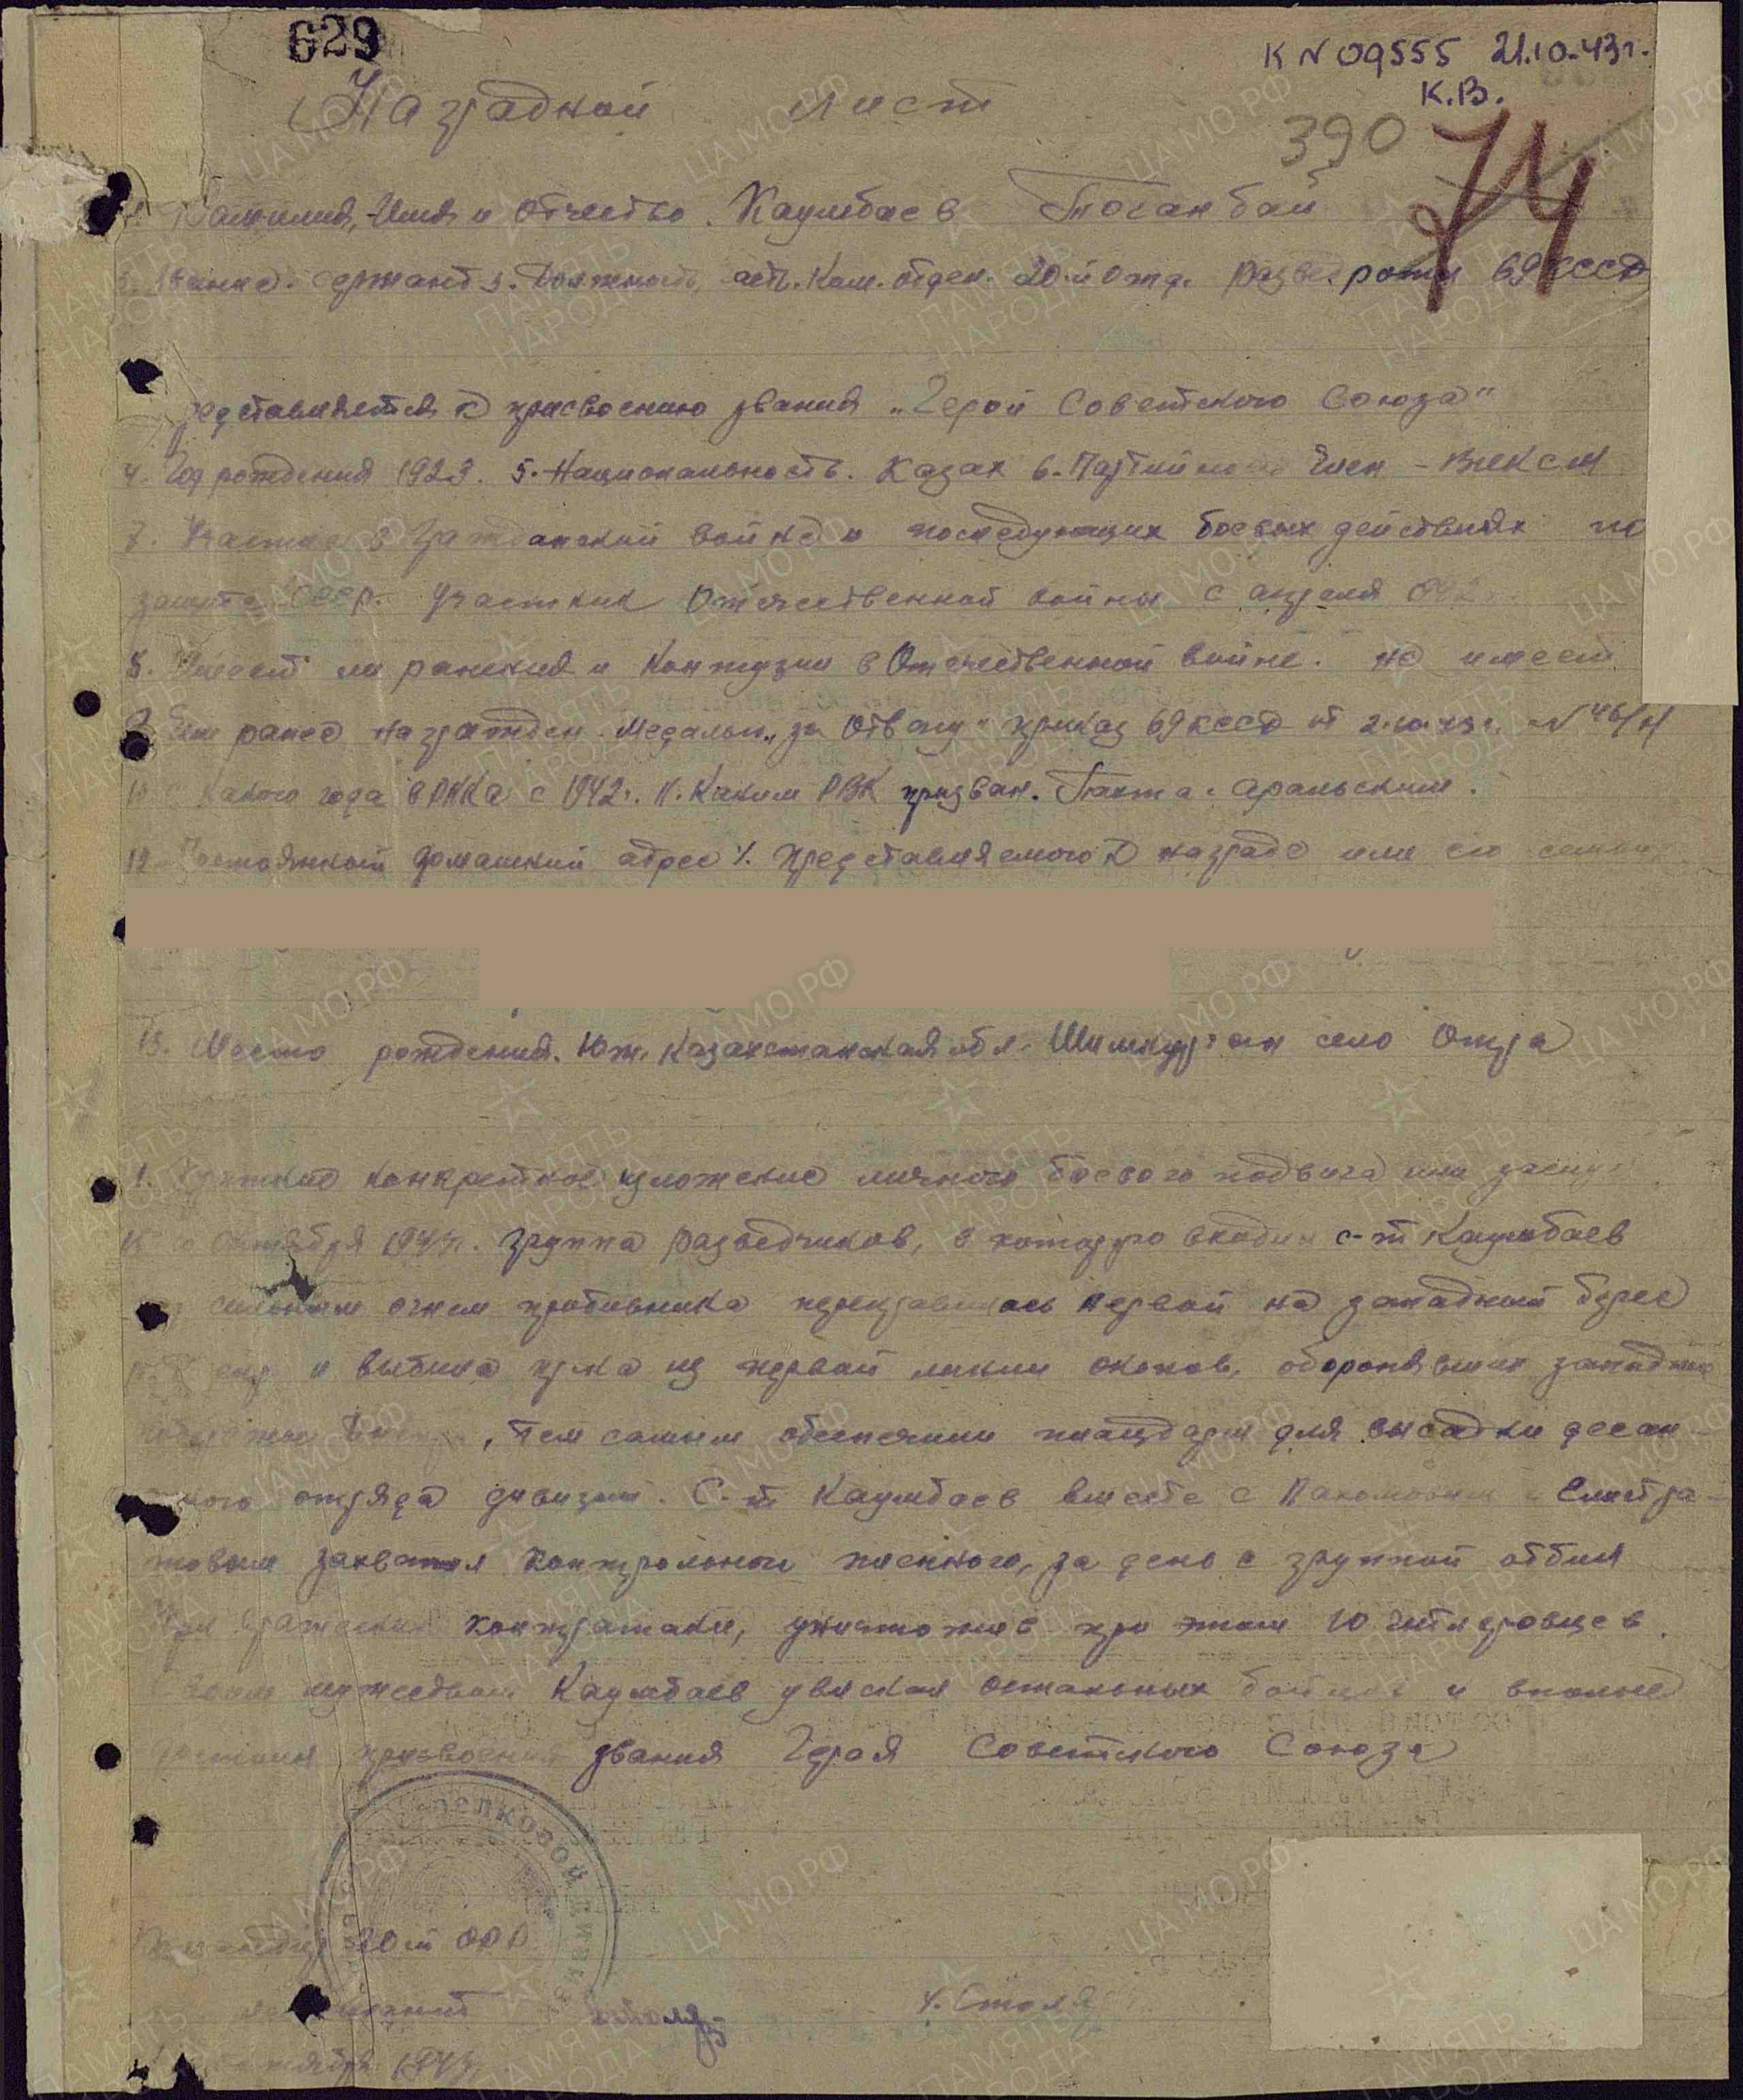 629
К N 09555 21.10.43г.
К.В.
Наградной лист
390
74
Фамилия, Имя и Отчество. Каумбаев Тоганбай
Звание. сержант 3. Должность, Ком. отден. 20-й Отд. развед. роты 69 КССД
редставляется к присвоению звания „Герой Советского Союза"
4. Год рождения 1923. 5. Национальность. Казах 6. Партийность Член - ВЛКСМ
7. Участие в Гражданской войне и последующих боевых действиях по
защите СССР. Участник Отечественной войны с апреля 1942
8. Имеет ли ранения и контузии в Отечественной войне. не имеет
9. Чем ранее награжден. Медалью „за Отвагу" приказ 69 КССД от 2.10.43 г. N 46/н
10 С какого года в РККА с 1942 г. 11. Каким РВК призван. Пахта-Аральским.
12 Постоянный домашний адрес представляемого к награде или его семьи
13. Место рождения. Юж. Казахстанская обл. село
1. Краткое конкретное изложение личного боевого подвига или заслуг
15 октября 1943 г. группа разведчиков, в которую входил с-т Каумбаев
сильным огнем противника переправилась первой на западный берег
и выбила пр-ка из первой линии окопов, оборонявших западное
, тем самым обеспечили плацдарм для высадки десан-
тного отряда дивизии. С-т Каумбаев вместе с Пахомовым и
захватил контрольного пленного, за день с группой отбил
три вражеских контратаки, уничтожив при этом 10 гитлеровцев.
Своим мужеством Каумбаев увлекал остальных бойцов и вполне
достоин присвоения звания Героя Советского Союза
стрелковой дивизии
Командир 20-й ОРР
октября 1943г.